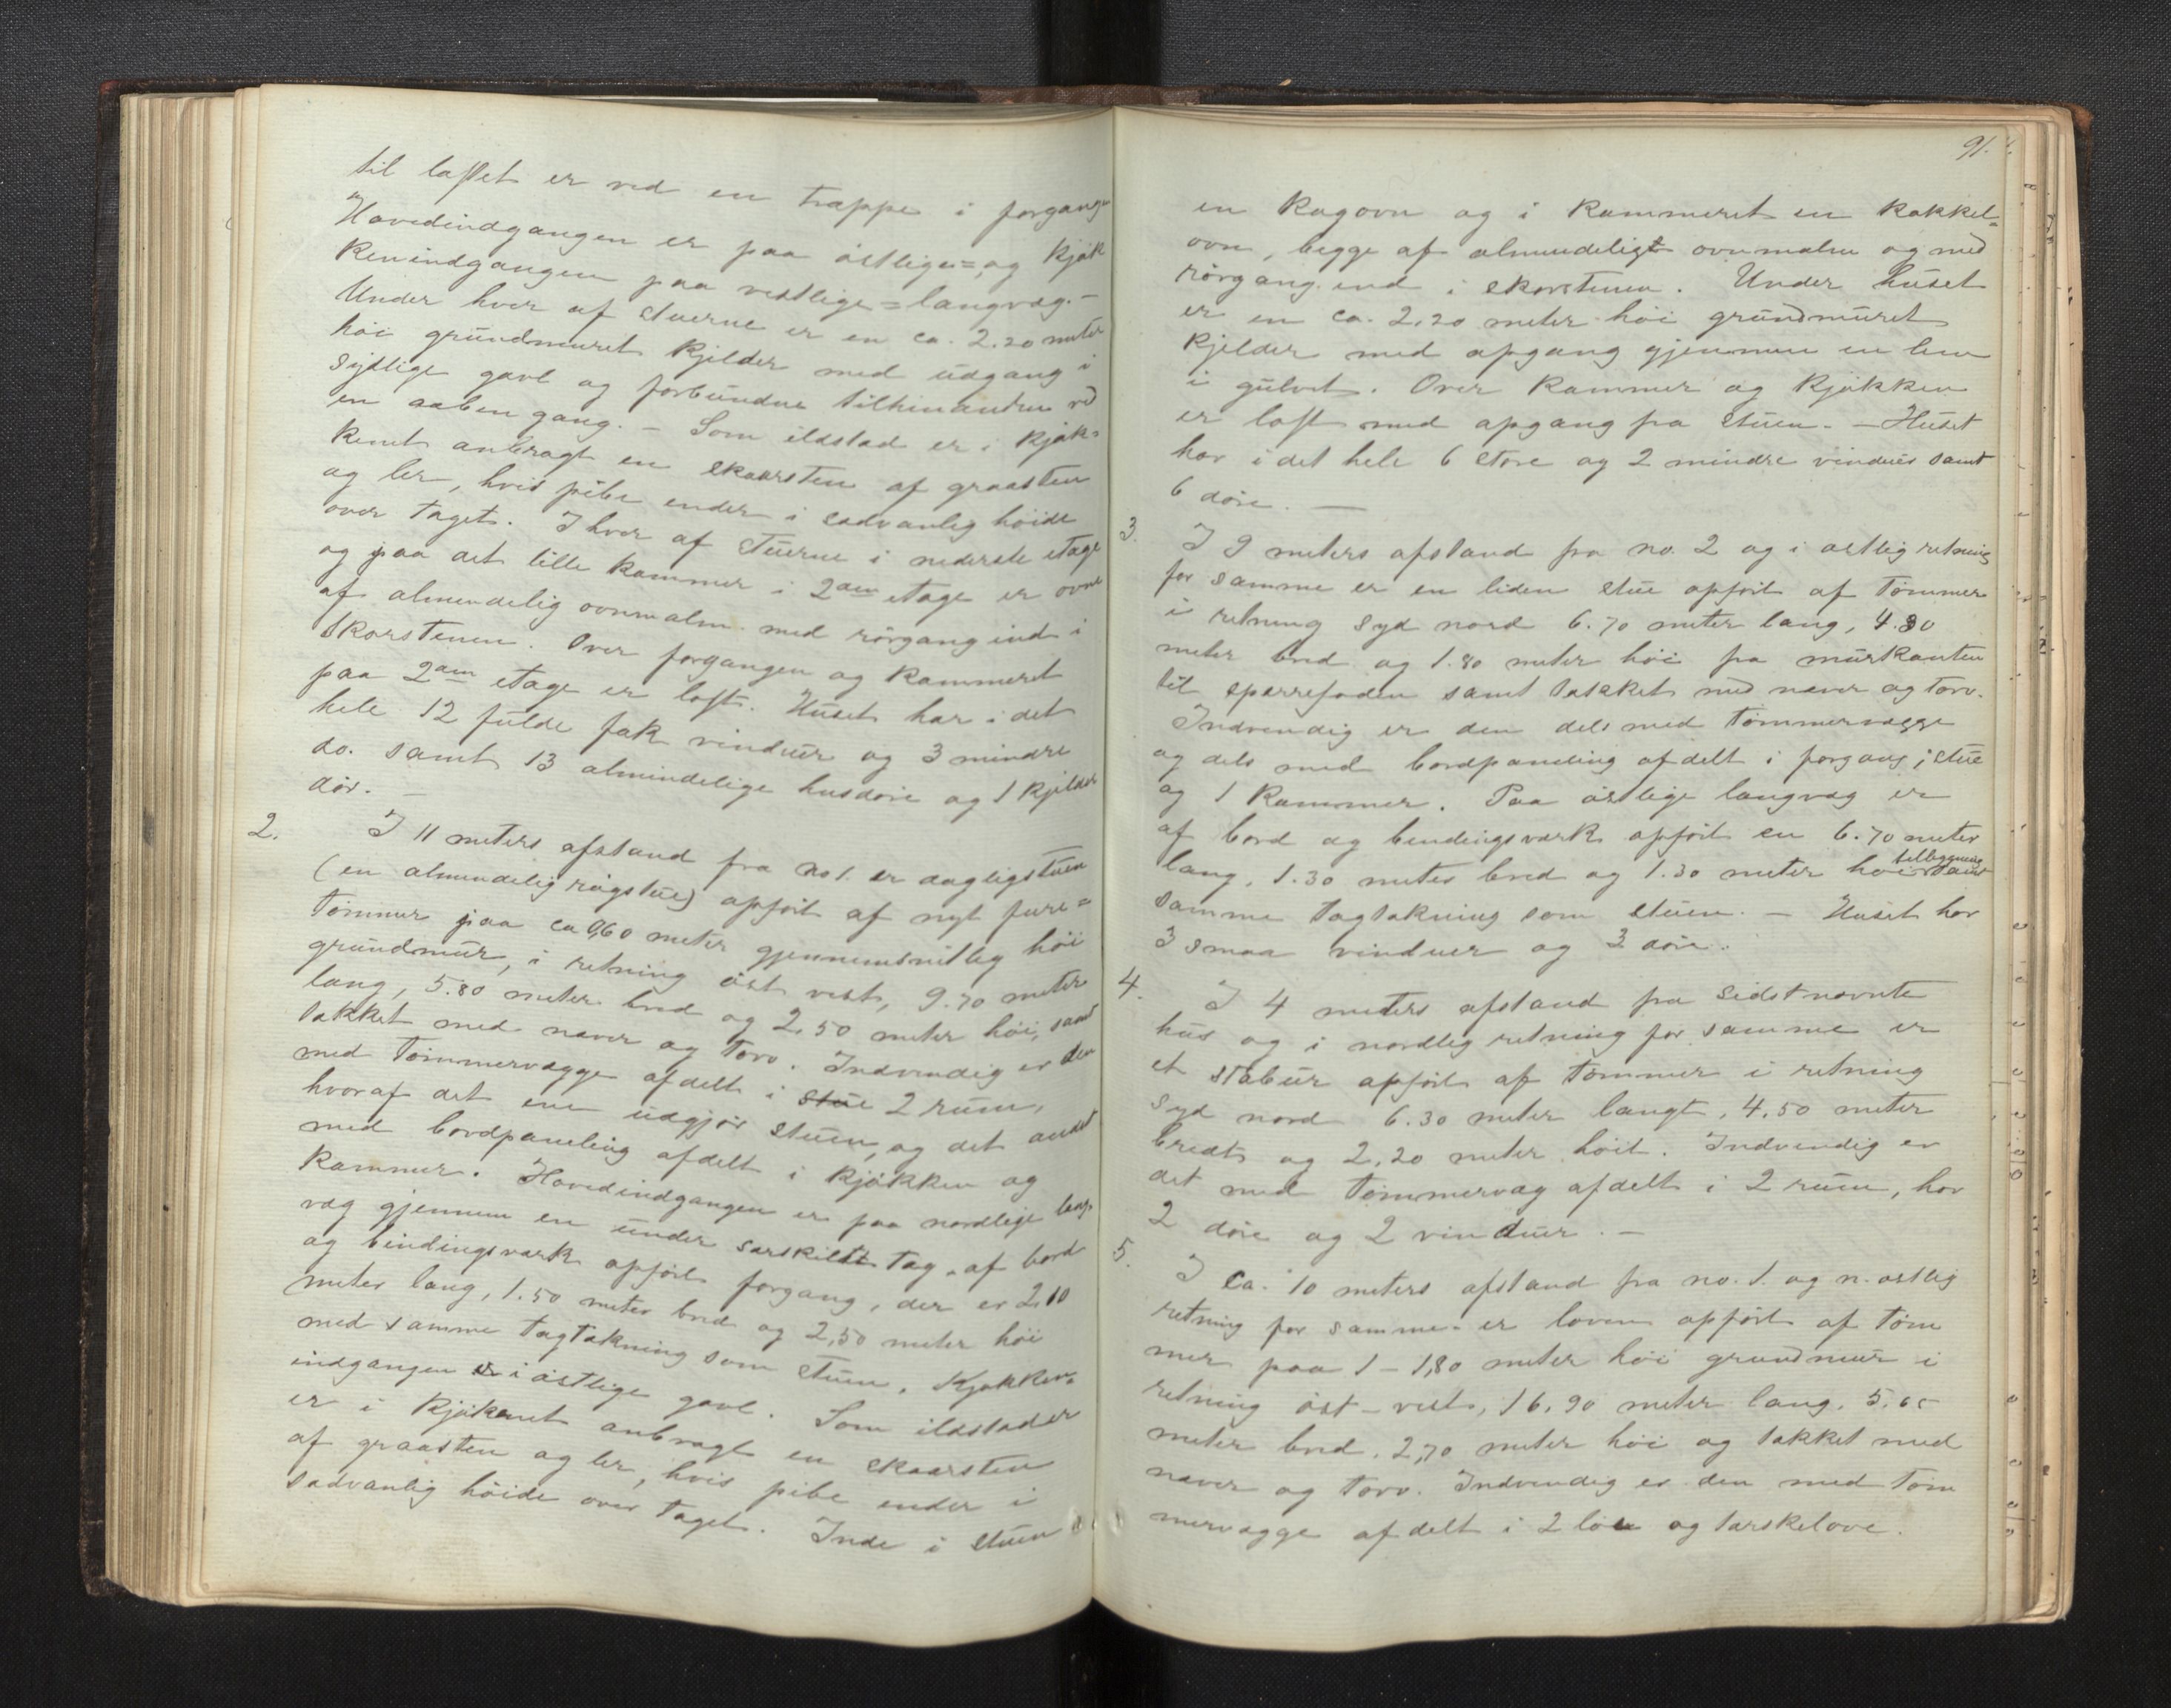 til loftet er ved en trappe i forgangen
Hovedindgangen er paa östlige= og kjök
kenindgangen paa vestlige=langvæg.-
Under hver af stuerne er en ca. 2.20 meter
höi grundmuret kjelder med udgang i
sydlige gavl og forbundne tilhinanden ved
en aaben gang. - Som ildstad er i kjøk=
kenet anbragt en skaarsten af graasten
og ler, hvis pibe ender i sædvanlig höide
over taget. I hver af stuerne i nederste etage
og paa det lille kammer i 2den etage er ovne
af almendelig ovnmalm med rörgang ind i
skorstenen. Over forgangen og kammeret
paa 2den etage er loft. Huset har i det
hele 12 fulde fak vinduer og 3 mindre
do. samt 13 almindelige husdöre og 1 kjelder
dör. -
2. I 11 meters afstand fra no 1. er dagligstuen
(en almendelig rögstue) opfört af nyt fure=
tömmer paa ca 0,60 meter gjennemsnitlig höi
grundmur, i retning öst vest, 9.70 meter
lang, 5.80 meter bred og 2.50 meter höi, samt
takket med næver og torv. Indvendig er den
med tömmervægge afdelt i stue 2 rum,
hvoraf det ene udgjör stuen, og det andet
med bordpaneling afdelt i kjökken og
kammer. Hovedindgangen er paa nordlige lang=
væg gjennem en under særskildt tag, af bord
og bindingsværk opfört forgang, der er 2.10
meter lang, 1.50 meter bred og 2,50 meter höi
med samme tagtækning som stuen. Kjøkken=
indgangen er i östlige gavl. Som ildstader
er i kjökenet anbragt en skaarsten
af graasten og ler, hvis pibe ender i
sædvanlig höide over taget. Inde i stuen
91.
en kogovn og i kammeret en kakkel=
ovn, begge af almendeligt ovnmalm og med
rörgang ind i skorstenen. Under huset
er en ca. 2.20 meter höi grundmuret
kjelder med opgang gjennem en lem
i gulvet. Over kammer og kjökken
er loft med opgang fra stuen. - Huset
har i det hele 6 store og 2 mindre vinduer samt
6 döre. -
3. I 9 meters afstand fra no. 2 og i østlig retning
for samme er en liden stue opfört af tømmer
i retning syd nord 6.70 meter lang, 4.30
meter bred og 1.80 meter höi fra murkanten
til sperrefoden samt takket med næver og torv.
Indvendig er den dels med tømmervægge
og dels med bordpaneling afdelt i forgang, stue
og 1 kammer. Paa östlige langvæg er
af bord og bendingsværk opfört en 6.70 meter
lang, 1.30 meter bred og 1.30 meter höi tilbygning samt
samme tagtækning som stuen. - Huset har
3 smaa vinduer og 3 döre.
4. I 4 meters afstand fra sidstnævnte
hus og i nordlig retning for samme er
et stabur opfört af tømmer i retning
syd nord 6.30 meter langt, 4.50 meter
bredt og 2,20 meter höit. Indvendig er
det med tömmervæg afdelt i 2 rum, har
2 döre og 2 vinduer. -
5. I ca. 10 meters afstand fra no. 1. og n. østlig
retning for samme er loven opfört af töm
mer paa 1 - 1,80 meter höi grundmur i
retning öst - vest, 16.90 meter lang, 5.65
meter bred, 2,70 meter höi og takket med
næver og torv. Indvendig er den med töm
mervægge afdelt i 2 löe og tærskelove.